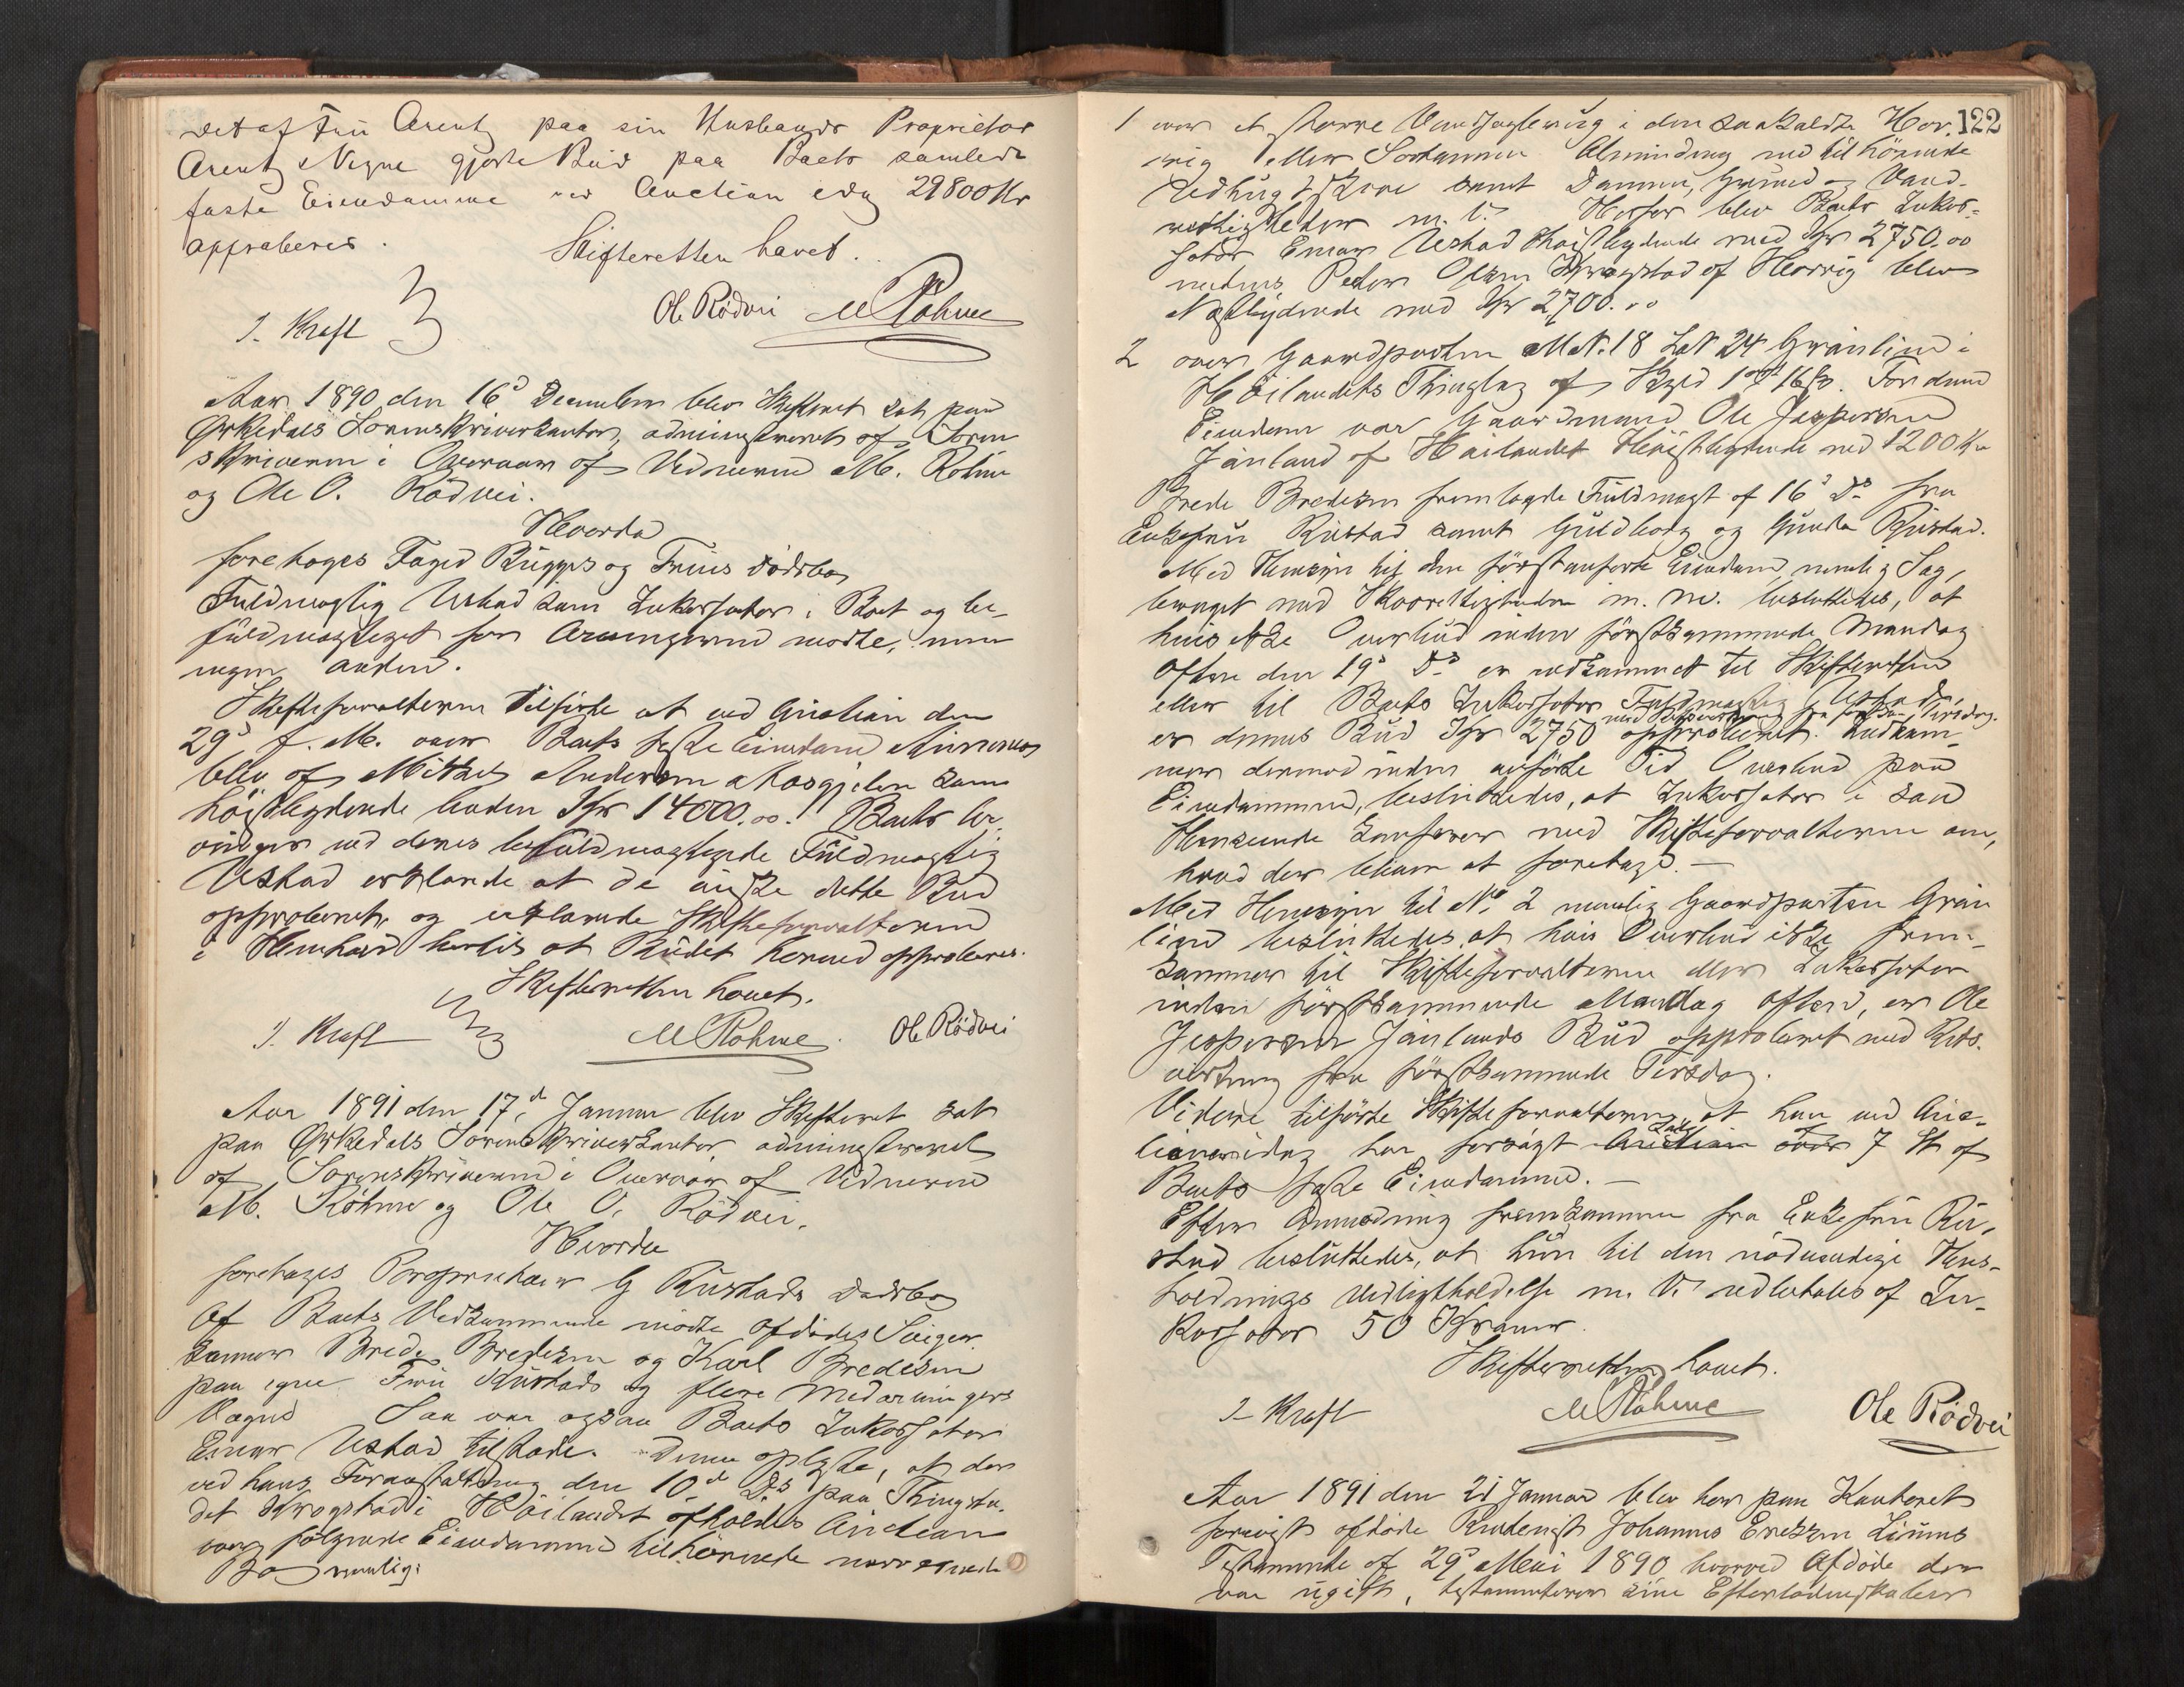 det af Fru Arentz paa sin Husbonds Proprietær
Arentz Vegne gjorte Bud paa Boets samlede
faste Eiendomme ved Auction idag 29800 Kr
approberes.
Skifteretten hævet.
J. Kraft
Ole Rödvei M Röhme
Aar 1890 den 16d December blev Skifteret sat paa
Orkedals Sorenskriverkontor, administreret af Soren
skriveren i Overvær af Vidnerne M. Röhme
og Ole O. Rödvei.
Hvorda
foretoges Foged Bugges og Frues Dödsbo
Fuldmægtig Ustad som Inkassator i Boet og be-
fuldmægtiget for Arvingerne mödte, men
ingen anden.
Skifteforvalteren tilförte at ved Auction den
29d f. M. over Boets faste Eiendom
blev af Mikkel Andersen Mosgjelen som
höistbydende buden Kr 14000.00. Boets Ar-
vinger ved deres befuldmægtigede Fuldmægtig
Ustad erklærede at de önske dette Bud
approberet og erklærede Skifteforvalteren
i Henhold hertil at Budet herved approberes.
Skifteretten hævet.
J. Kraft M Röhme. Ole Rödvei
Aar 1891 den 17d Januar blev Skifteret sat
paa Orkedals Sorenskriverkontor administreret
af Sorenskriveren i Overvær af Vidnerne
M. Röhme og Ole O. Rödvei.
Hvorda
foretoges G Rustads Dödsbo
Af Boets Vedkommende mödte afdödes Sviger
sönner Brede Bredesen og Karl Bredesen
paa egne Fru Rustads og flere Medarvingers
Vegne Saa var ogsaa Boets Inkassator
Einar Ustad tilstede. Denne oplyste, at der
ved hans Foranstaltning den 10d Ds paa Thingste-
det Krogstad i Höilandet afholdtes Auction
over fölgende Eiendomme tilhörende nærværende
Bo nemlig:
122
1 over et större Vandsagbrug i den saakaldte
eller Almending med tilhörende
samt Damme, Grund og Vand-
rettigheder m. V. Herfor blev Boets Inkas-
sator Einar Ustad höistbydende med Kr 2750.00
medens Peder Olsen Krogstad af blev
Næstbydende med Kr 2700.00
2 over Gaardparten M.N. 18 L.N 24 Grönlien i
Höilandets Thinglag af Skyld 1 ort 16 ß. For denne
Eiendom var Gaardmand Ole Jespersen
af Höilandet Höistbydende med 1200 Kr
Brede Bredesen fremlagde Fuldmagt af 16d Ds fra
Enkefru Rustad samt Guldborg og Gunda Rustad.
Med Hensyn til den förstanförte Eiendom, nemlig Sag-
bruget med Skovrettigheder m. m. besluttedes, at
hvis ikke Overbud inden förstkommende Mandag
Aften den 19d Ds er indkommet til Skifteretten
eller til Boets Inkassator Fuldmægtig Ustad,
er dennes Bud Kr 2750 approberet med Retsvirkning fra förstk. Tirsdag. Indkom-
mer dermod inden anförte Tid Overbud paa
Eiendommen, besluttedes, at Inkassator i saa
Henseende konferer med Skifteforvalteren om,
hvad der bliver at foretage. —
Med Hensyn til No 2 nemlig Gaardparten Grön
lien besluttedes, at hvis Overbud ikke frem-
kommer til Skifteforvalteren eller Inkassator
inden förstkommende Mandag Aften, er Ole
Jespersen Bud approberet med Rets-
virkning fra förstkommende Tirsdag.
Videre tilförte Skifteforvalteren, at han ved Auc-
tionen idag har forsögt Auction over 7 St af
Boets faste Eiendomme. —
Efter Anmodning fremkommen fra Enkefru Ru-
stad besluttedes, at hun til den nödvendige Hus-
holdnings Vedligeholdelse m. V. udbetales af In-
kassator 50 Kroner.
Skifteretten hævet.
J. Kraft M Röhme Ole Rödvei
Aar 1891 den 21 Januar blev her paa Kontoret
forevist afdöde Johannes Eriksen
Testamente af 29d Mai 1890 hvorved Afdöde der
var ugift, testamenterer sine Efterladenskaber